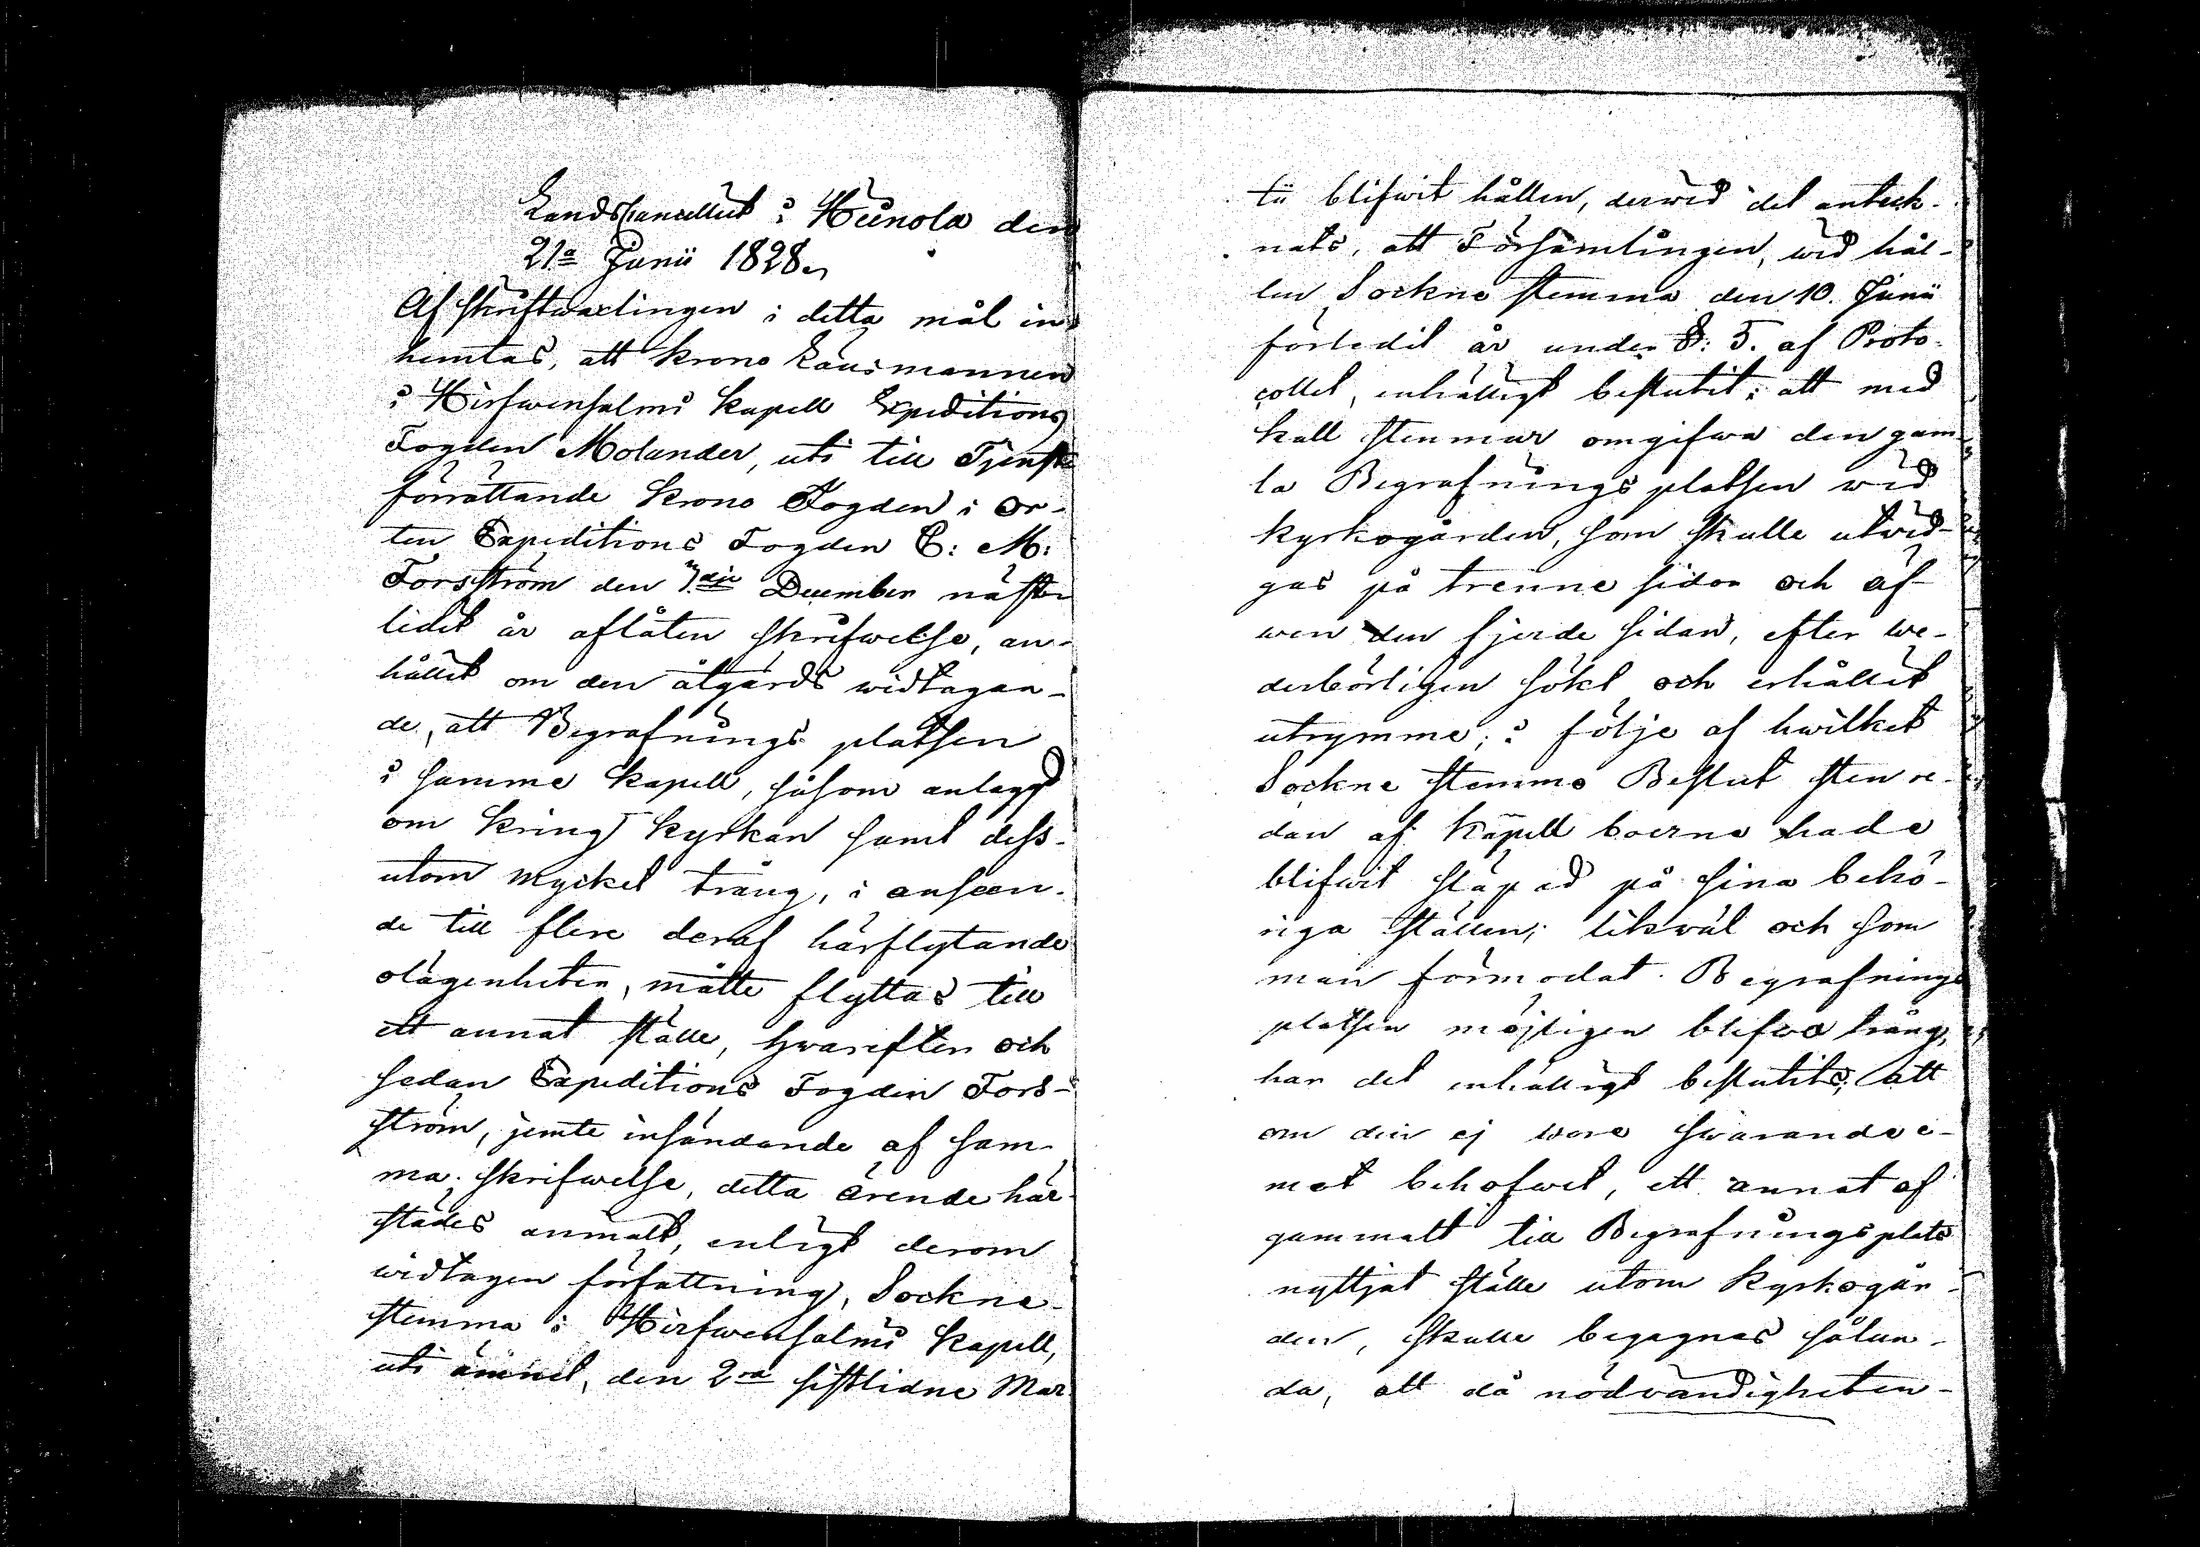 Landscancellict i Heinola den
21a Junii 1828.
Af skriftwexlingen i detta mål in-
hemtas, att krono Länsmannen
i Hirfwensalmi Kapell Expeditions
Fogden Molander, uti till Tjenst-
förrättande Krono Fogden i or-
ten Expeditions Fogden C: M:
Forsström den 7die December näst-
lidet år aflåten skrifwelse, an-
hållit om den åtgärds widtagan-
de, att Begrafnings platsen
i samme Kapell, såsom anlagd
om kring Kyrkan samt dess-
utom mycket trång, i anseen-
de till flere deraf härflytande
olägenheter, måtte flyttas till
ett annat ställe, hwarefter och
sedan Expeditions Fogden Fors-
ström, jemte insändande af sam-
ma skrifwelse, detta ärende här-
städes anmält, enligt derom
widtagen författning, Sockne-
stemma i Hirfwensalmi Kapell,
uti ämnet, den 2ra sistlidne Mar-
tii blifwit hållen, derwid det anteck-
nats, att Församlingen, wid hål-
len Sockne stemma den 10. Junii
förledit år under §: 5. af Proto-
collet, enhälligt beslutit; att med
kall stenmur omgifwa den gam-
la Begrafnings platsen wid
kyrkogården, som skulle utwid-
gas på trenne sidor och äf-
wen den fjerde sidan, efter we-
derbörligen sökt och erhållit
utrymme; i följe af hwilket
Sockne stemmo Beslut sten re-
dan af Kapell boerne hade
blifwit släpad på sina behö-
riga ställen; likwäl och som
man förmodat Begrafnings
platsen möjligen blifwa trång,
har det enhälligt beslutits, att
om den ej wore swarande e-
mot behofwet, ett annat af
gammalt till Begrafningsplats
nyttjat ställe utom Kyrkogår-
den, skulle begagnas sålun-
da, att då nödvändigheten-